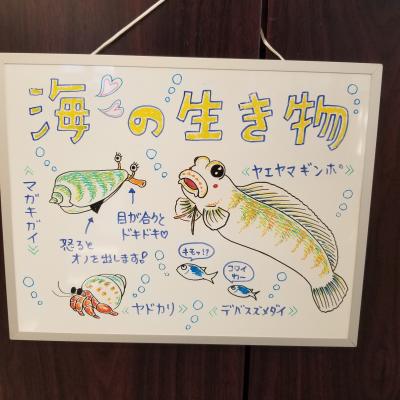 海の生き物
《ヤエヤマギンポ》
《マガキガイ》
目が合うと
ドキドキ♡
怒ると
オノを出します!
キモッ!?
コワイ
わー
《ヤドカリ》
《デバスズメダイ》